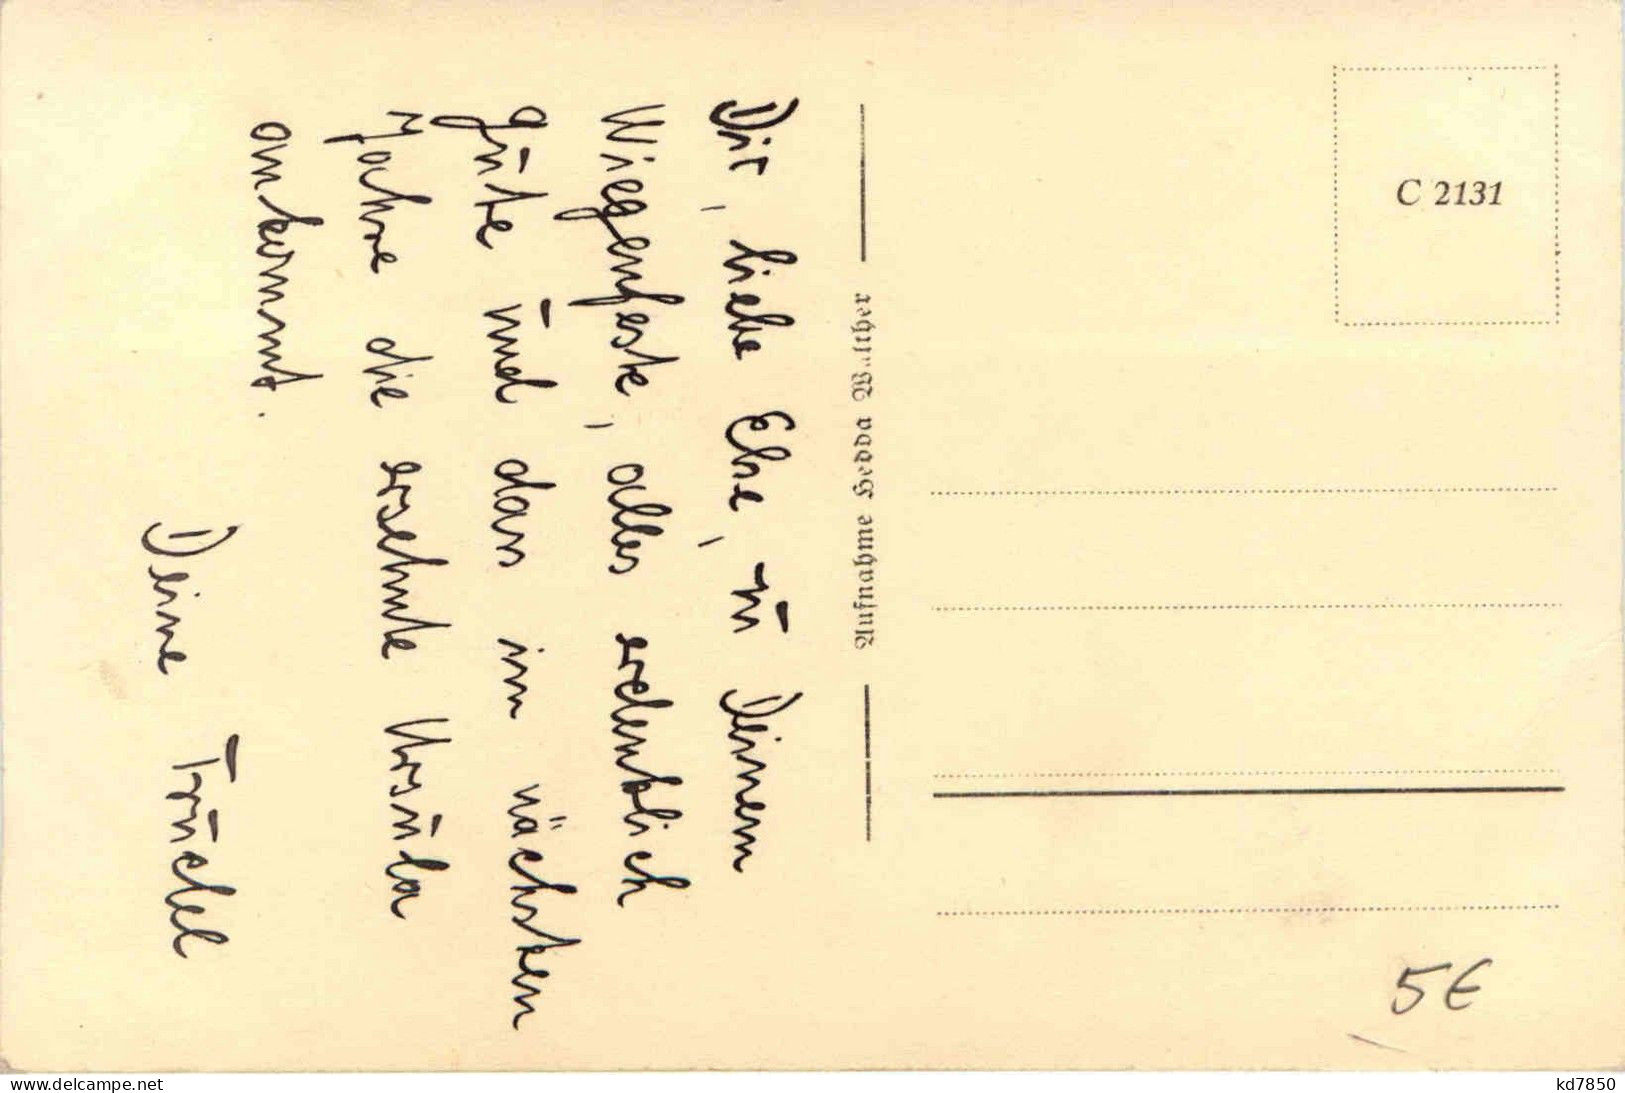 Dir, liebe Else, zu Deinem
Wiegenfeste, alles erdenklich
gute und das im nächsten
Jahre die ersehnte Ursula
ankommt.
Deine Trudel
Aufnahme Hedda Walther
C 2131
5€
www.delcampe.net
kd7850